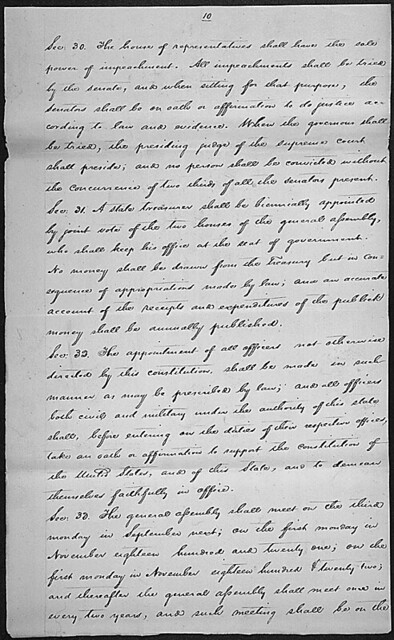 10
Sec. 30. The house of representatives shall have the sole
power of impeachment. All impeachments shall be tried
by the senate, and when sitting for that purpose, the
senators shall be on oath or affirmation to do justice ac-
cording to law and evidence. When the governor shall
be tried, the presiding judge of the supreme court
shall preside; and no person shall be convicted without
the concurrence of two thirds of all the senators present.
Sec. 31. A state treasurer shall be biennially appointed
by joint vote of the two houses of the general assembly,
who shall keep his office at the seat of government.
No money shall be drawn from the Treasury but in con-
sequence of appropriations made by law; and an accurate
account of the receipts and expenditures of the publick
money shall be annually published.
Sec. 32. The appointment of all officers not otherwise
directed by this constitution, shall be made in such
manner as may be prescribed by law; and all officers
both civil and military under the authority of this state
shall, before entering on the duties of their respective offices,
take an oath or affirmation to support the constitution of
the United States, and of this State, and to demean
themselves faithfully in office.
Sec. 33. The general assembly shall meet on the third
monday in September next; on the first monday in
November eighteen hundred and twenty one; on the
first monday in November eighteen hundred & twenty two;
and thereafter the general assembly shall meet once in
every two years, and such meeting shall be on the